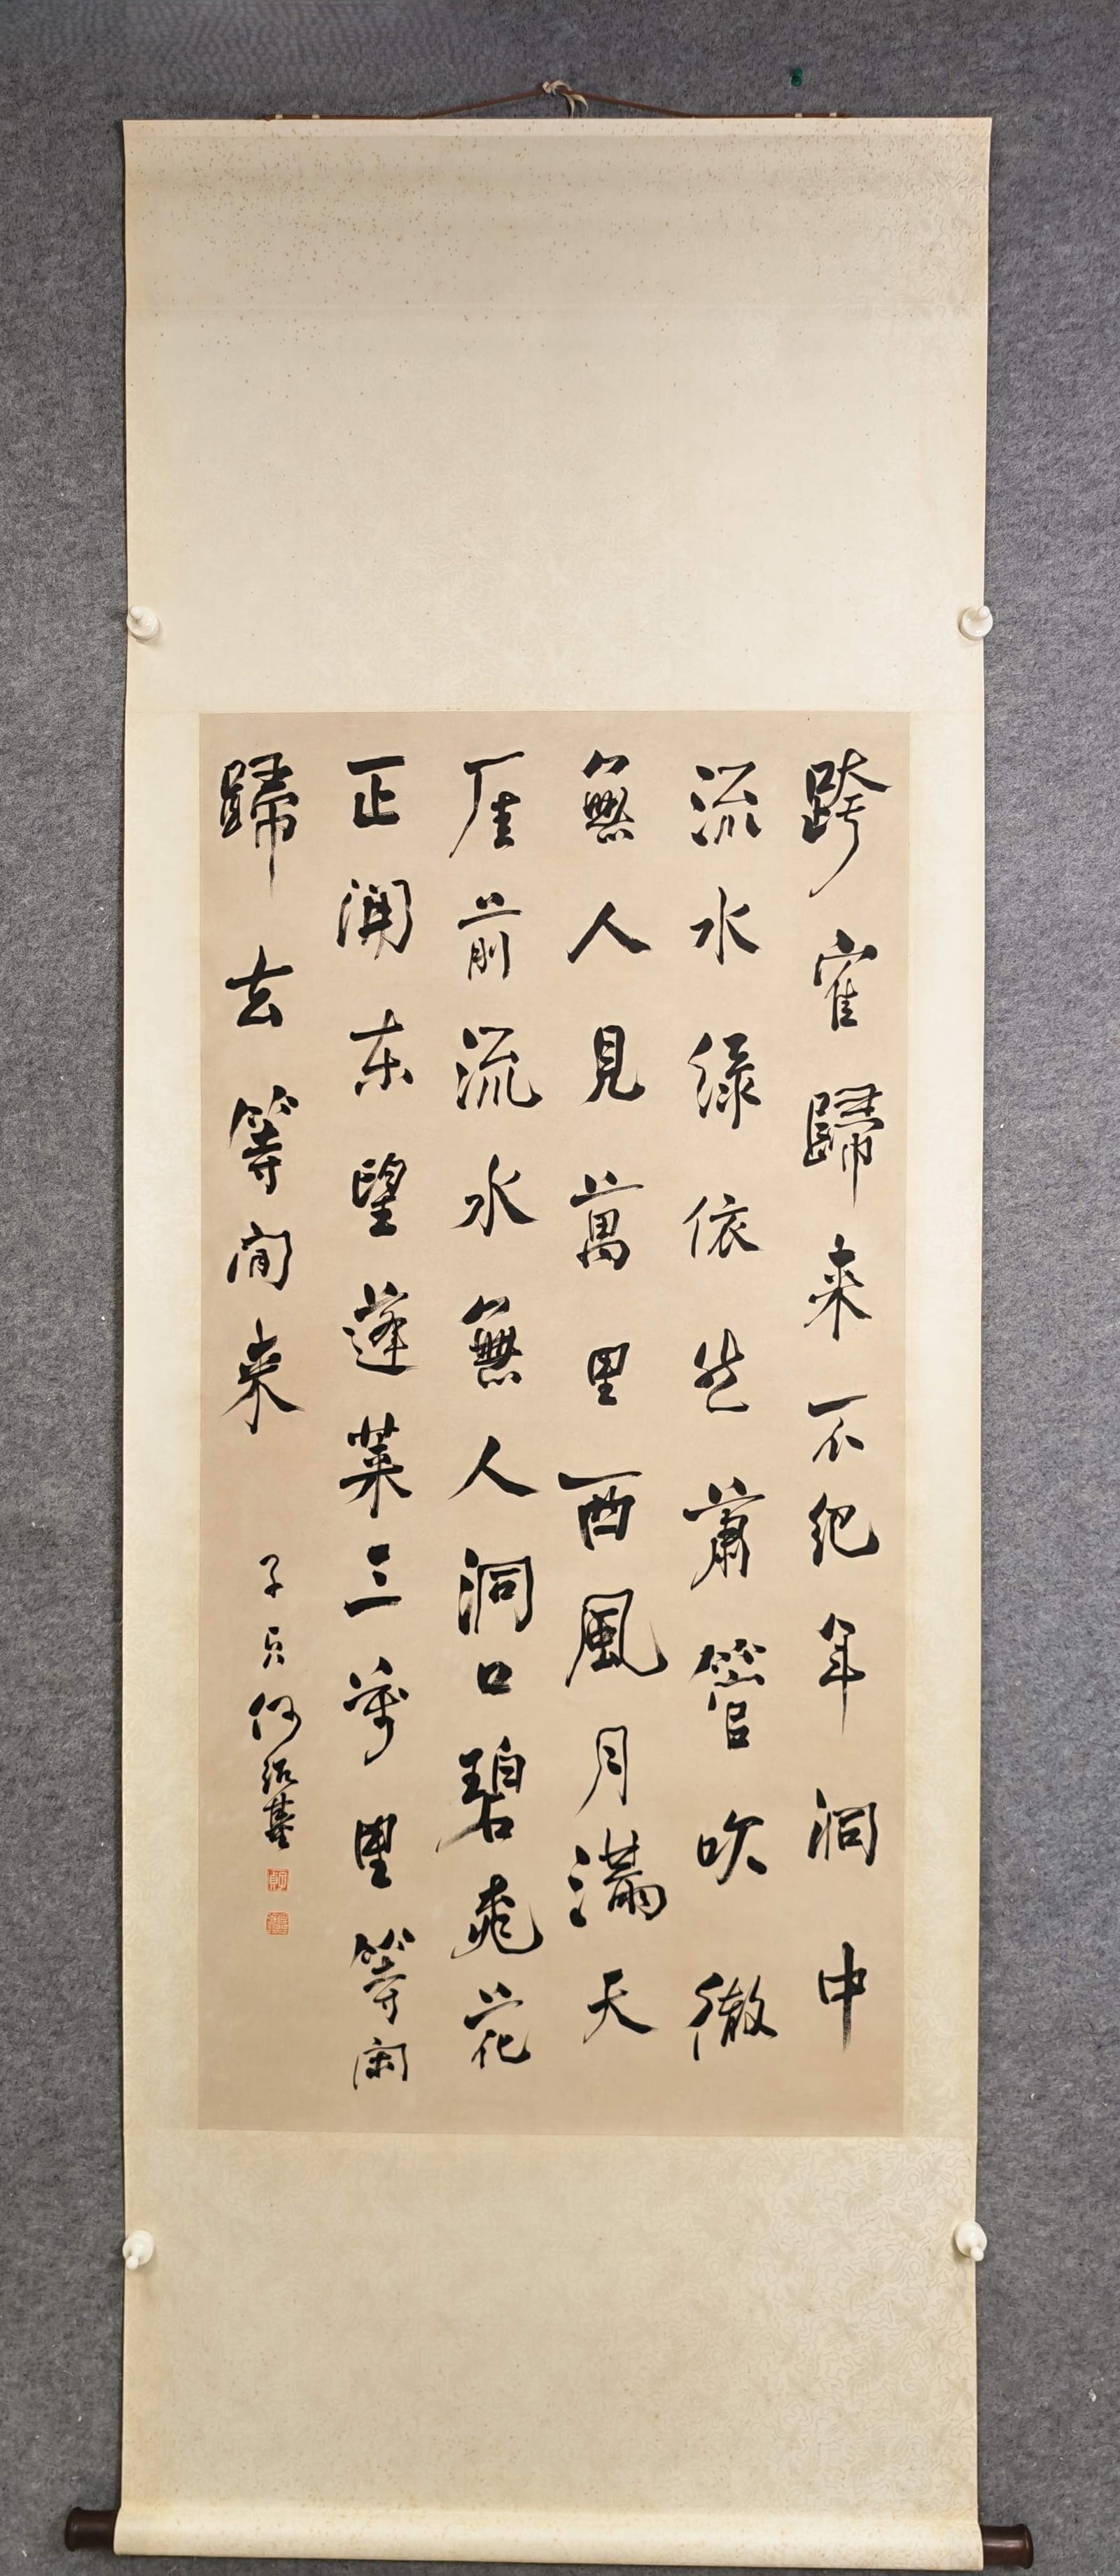 跨寉歸来不纪年洞中
流水緑依然蕭管吹徹
無人見萬里西風月滿天
厓前流水無人洞口碧桃花
正開东望蓬莱三萬里等閑
歸去等閒来
子貞何紹基